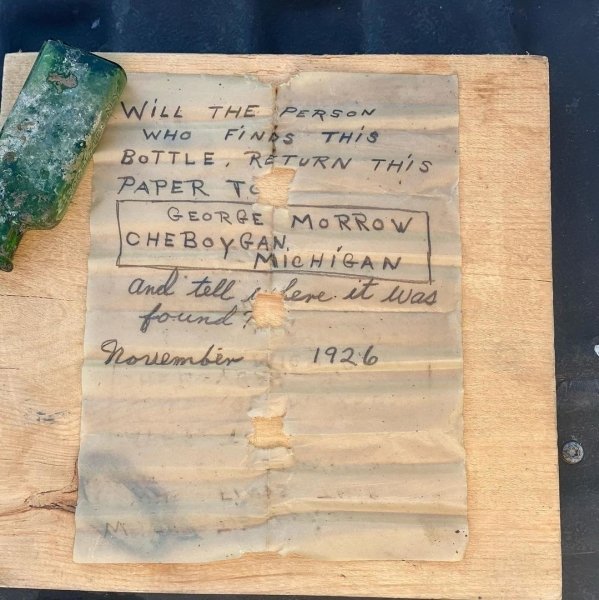 WiLL THE PERSON
WHO FINDS THIS
BOTTLE, RETURN THiS
PAPER TO
GEORGE MORROW
CHEBOYGAN,
MiCHiGAN
and tell where it was
found?
November 1926